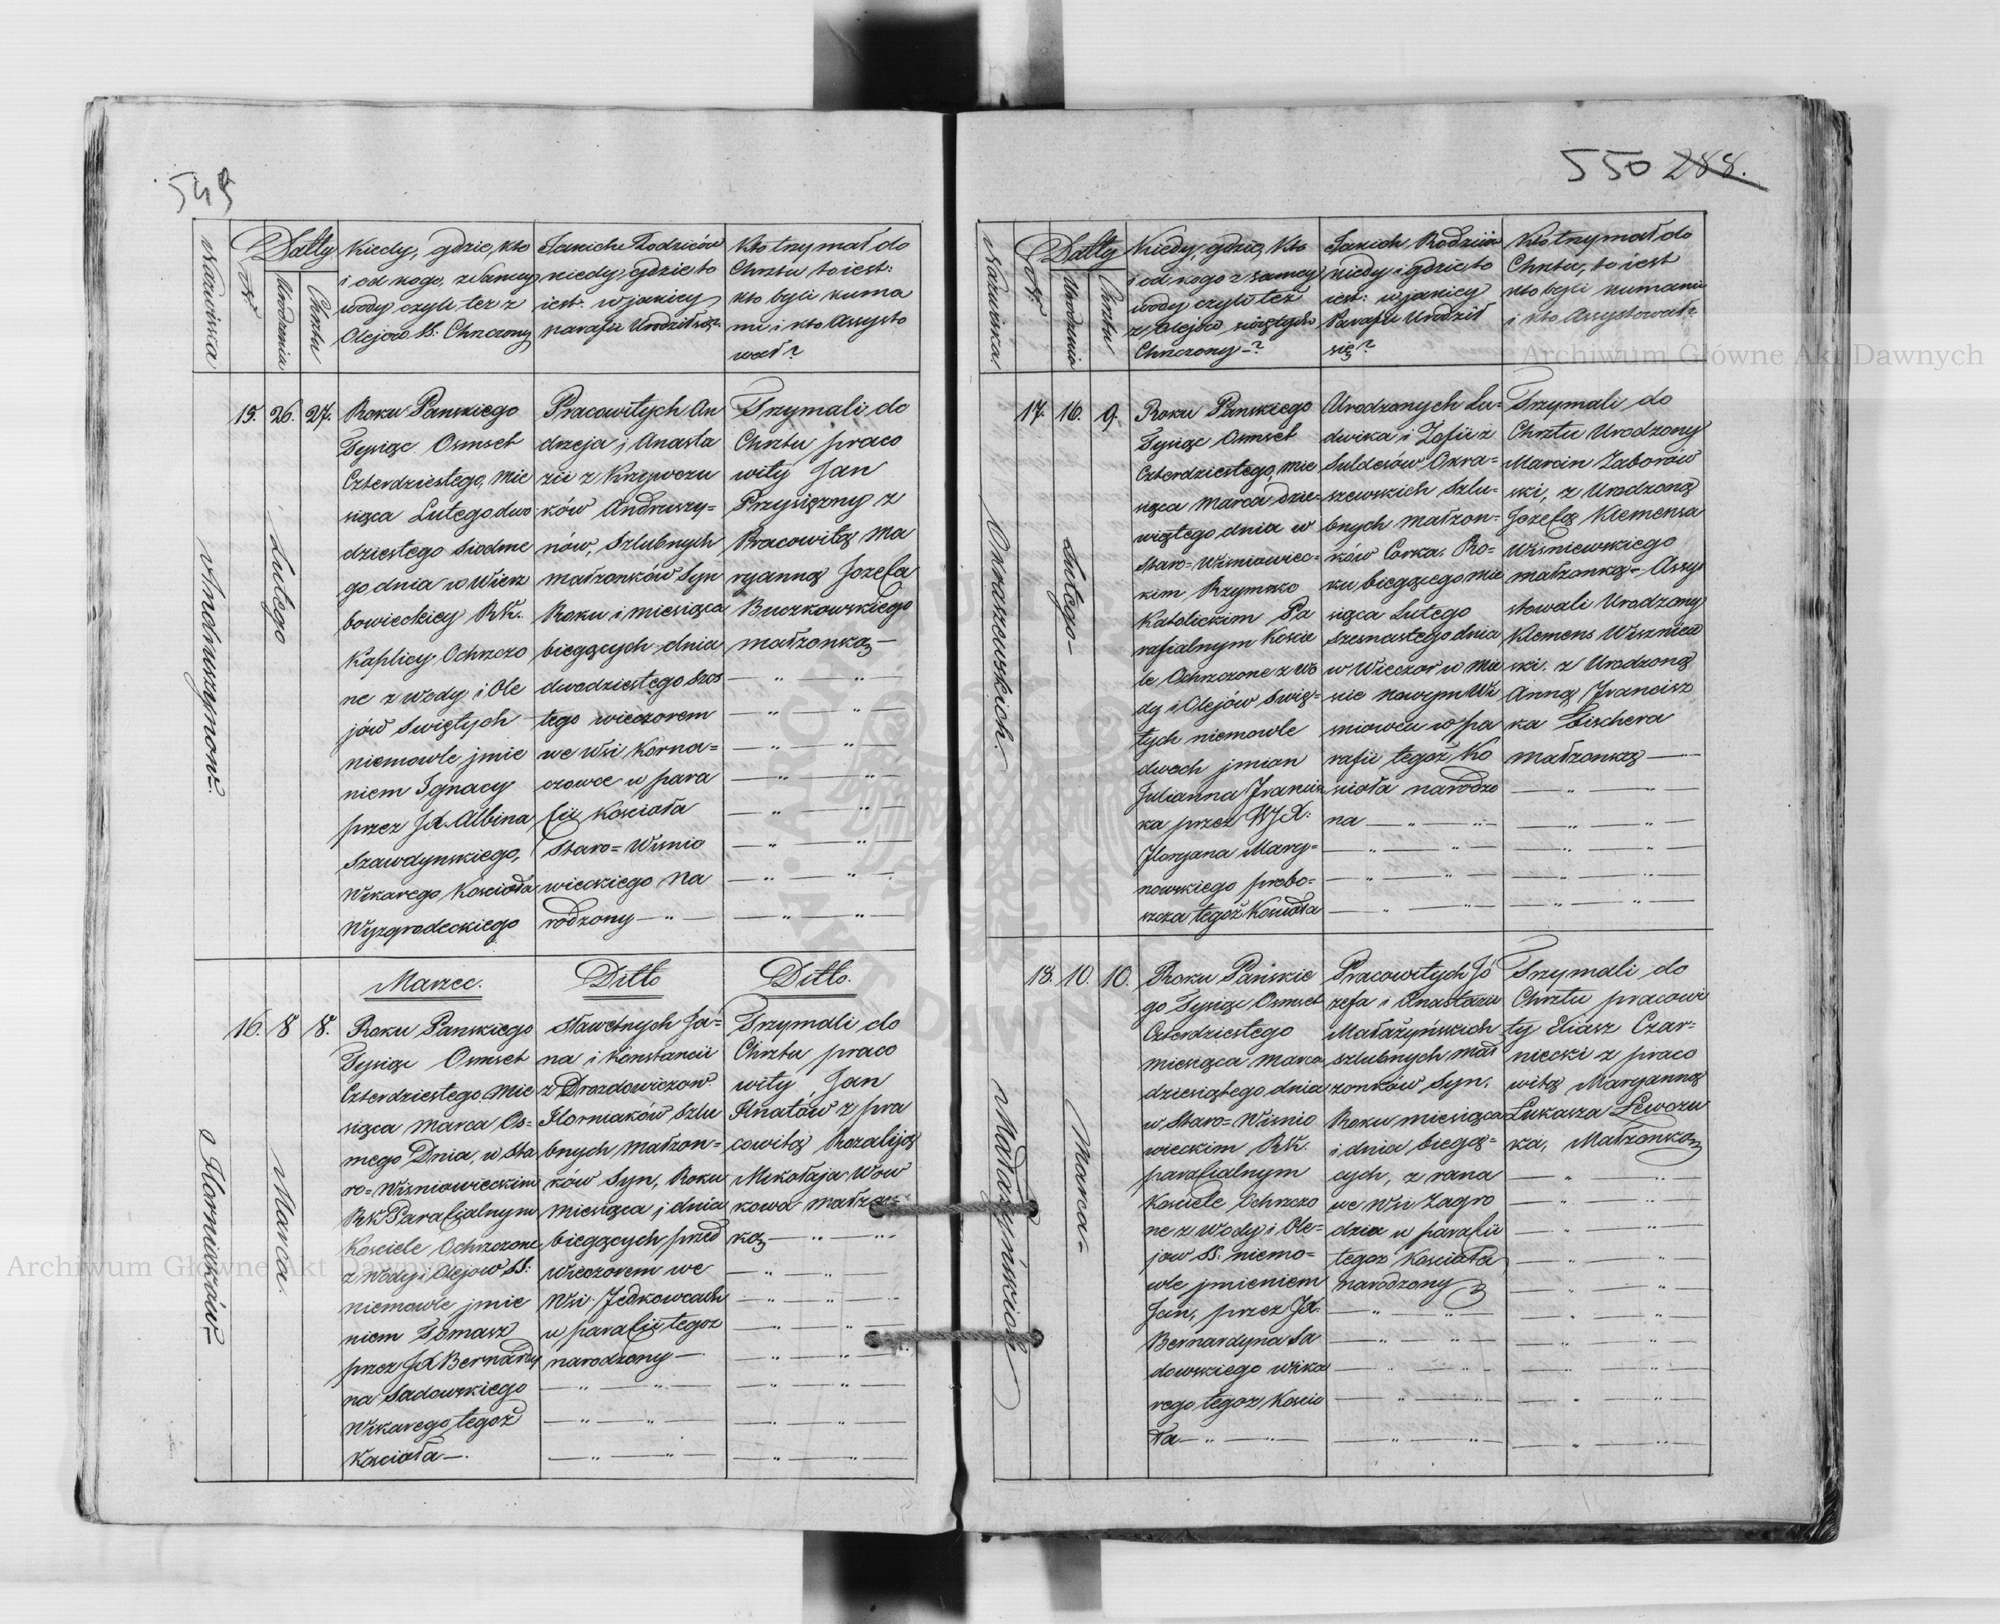 549
Nazwiska
N.
Datty
Urodzenia
Chrztu
Kiedy, gdzie, kto
i od kogo, z samey
wody czyli tez z
Olejow SS. Chrzczony
Jakich Rodziców
kiedy, gdzie to
iest: w jakiey
parafii Urodził się.
Kto trzymał do
Chrztu to iest:
kto byli kuma
mi i kto Assysto
wał?
Andruszynow=
15.
26.
Lutego
27.
Roku Panskiego
Tysiąc Osmset
Czterdziestego, mie
siąca Lutego dwo
dziestego siodme
go dnia w Wierz
bowieckiey RK.
Kaplicy Ochrzczo
ne z wody i Ole
jów Swiętych
niemowle jmie
niem Ignacy
przez JX. Albina
Szawdynskiego,
Wikarego Kościoła
Wyzgrodeckiego
Pracowitych An
drzeja i Anasta
zii z Krzywczu
ków Andruszy=
nów, Szlubnych
małzonków Syn
Roku i miesiąca
biegących dnia
dwodziestego szos
tego wieczorem
we wsi Korna=
czowce w para
fii Kościoła
Staro=Wisnio
wieckiego na
rodzony
Trzymali do
Chrztu praco
wity Jan
Przysiężny z
Pracowitą Ma
ryanną Jozefa
Buczkowskiego
małzonką
Florniaków=
16.
8
Marca.
8.
Marzec.
Roku Panskiego
Tysiąc Osmset
Czterdziestego, mie
siąca Marca Os=
mego Dnia, w Sta
ro=Wisniowieckim
RK Parafialnym
Kosciele Ochrzczone
z Wody i Olejow SS:
niemowle jmie
niem Tomasz
przez JX Bernardy
na Sadowskiego
Wikarego tegoż
Kościoła
Ditto
Sławetnych Ja=
na i Konstancii
z Drozdowiczow
Florniaków Szlu
bnych małzon=
ków Syn, Roku
Miesiąca i dnia
biegących przed
wieczorem we
Wsi Jedkowcach
w parafii tegoz
narodzony
Ditto.
Trzymali do
Chrztu praco
wity Jan
Hnatów z pra
cowitą Rozaliją
Mikołaja Wow
kowa małzon=
ką
550 288.
Nazwiska
N.
Datty
Urodzenia
Chrztu
Kiedy, gdzie, kto
i od kogo z samey
wody czyli też
z Olejów swiętych
Chrzczony -?
Jakich Rodzicow
kiedy i gdzie to
iest: w jakiey
Parafii Urodził
się?
Kto trzymał do
Chrztu, to iest
kto byli kumami
i kto Assystował?
Okraszewskich.
17.
16.
Lutego
9.
Roku Panskiego
Tysiąc Osmset
Czterdziestego, mie
siąca Marca dzie=
wiątego dnia w
Staro=Wisniowiec=
kim, Rzymsko
Katolickim Pa
rafialnym Koscie
le Ochrzczone z wo
dy i Olejów Swię=
tych niemowle
dwoch jmion
Julianna Francisz
ka przez WJX:
Floryana Mary=
nowskiego probo=
szcza tegoż Kosciola
Urodzonych Lu=
dwika i Zofii z
Suldesów Okra=
szewskich Szlu=
bnych małzon=
ków Corka. Ro=
ku biegącego mie
siąca Lutego
Szesnastego dnia
w Wieczor w mie
scie nowym Wi
sniowcu w pa
rafii tegoż Ko
scioła narodzo
na
Trzymali do
Chrztu Urodzony
Marcin Zaborów
ski, z Urodzoną
Jozefą Klemensa
Wiśniewskiego
małzonką- Assy
stowali Urodzony
Klemens Wiszniew
ski. z Urodzoną
Anną Francisz
ka Fischera
Małzonką
Małażyńskich
18.
10.
Marca=
10.
Roku Pańskie
go Tysiąc Osmset
Czterdziestego
miesiąca Marca
dziesiątego dnia
w, Staro=Wisnio
wieckim RK.
parafialnym
Kosciele Ochrzczo
ne z Wody i Ole=
jow SS. niemo=
wle jmieniem
Jan, przez JX.
Bernardyna Sa
dowskiego wika
rego tegoz Koscio
ła
Pracowitych Jó
zefa i Anastazii
Małażyńskich
szlubnych mał
zonkow Syn,
Roku miesiąca
i dnia biegą=
cych, z rana
we Wsi Zagro
dzia w parafii
tegoz Kościoła
narodzony
Trzymali do
Chrztu pracowi
ty Eliasz Czar=
niecki z praco
witą Maryanną
Lukasza Lewczu
ka, Małzonką
Archiwum Główne Akt Dawnych
Archiwum Główne Akt Dawnych